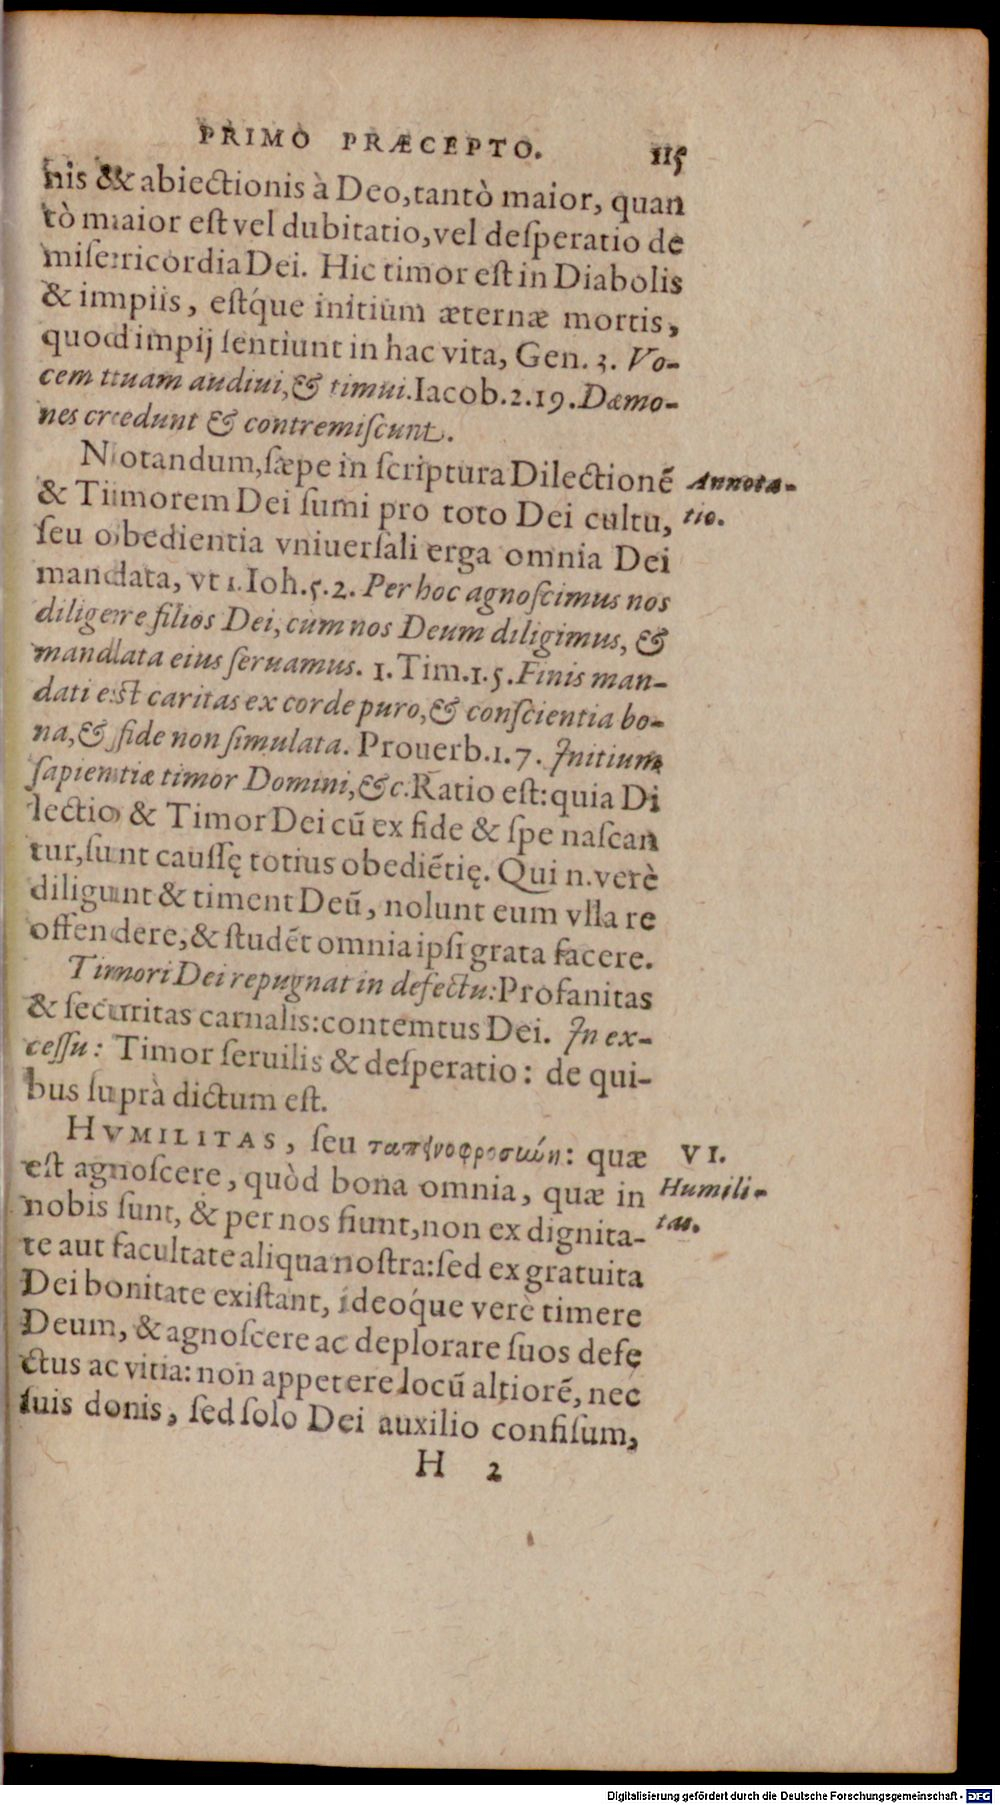 PRIMO PRÆCEPTO. 115
nis & abiectionis à Deo, tantò maior, quan
tò maior est vel dubitatio, vel desperatio de
misericordia Dei. Hic timor est in Diabolis
& impiis, estq́ue initium æternæ mortis,
quod impij sentiunt in hac vita, Gen. 3. Vo-
cem tuam audiui, & timui. Iacob. 2. 19. Dæmo-
nes credunt & contremiscunt.
Notandum, sæpe in scriptura Dilectionē
& Timorem Dei sumi pro toto Dei cultu,
seu obedientia vniuersali erga omnia Dei
mandata, vt 1. Ioh. 5. 2. Per hoc agnoscimus nos
diligere filios Dei, cum nos Deum diligimus, &
mandata eius seruamus. 1. Tim. 1. 5. Finis man-
dati est caritas ex corde puro, & conscientia bo-
na, & fide non simulata. Prouerb. 1. 7. Initium
sapientiæ timor Domini, &c. Ratio est: quia Di
lectio & Timor Dei cū ex fide & spe nascan
tur, sunt caussę totius obediētię. Qui n. verè
diligunt & timent Deū, nolunt eum vlla re
offendere, & studēt omnia ipsi grata facere.
Timori Dei repugnat in defectu: Profanitas
& securitas carnalis: contemtus Dei. In ex-
cessu: Timor seruilis & desperatio: de qui-
bus suprà dictum est.
HVMILITAS, seu ταπεινοφροσύνη: quæ
est agnoscere, quòd bona omnia, quæ in
nobis sunt, & per nos fiunt, non ex dignita-
te aut facultate aliqua nostra: sed ex gratuita
Dei bonitate existant, ideoq́ue verè timere
Deum, & agnoscere ac deplorare suos defe
ctus ac vitia: non appetere locū altiorē, nec
suis donis, sed solo Dei auxilio confisum,
H 2
Annota-
tio.
VI.
Humili-
tas.
Digitalisierung gefördert durch die Deutsche Forschungsgemeinschaft - DFG